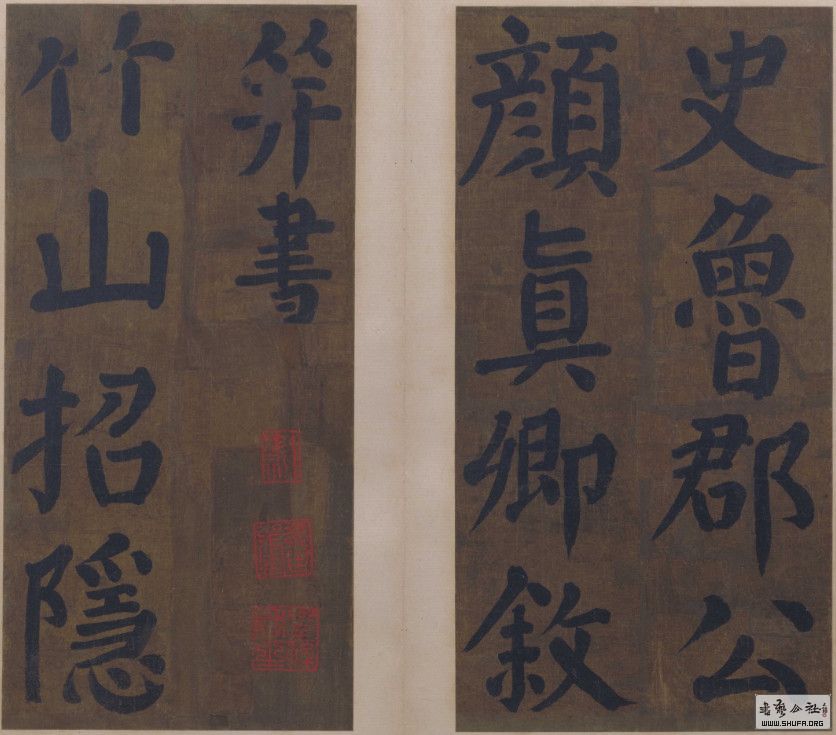 史魯郡公
顔眞卿敘
并書
竹山招隱
書藝公社
WWW.SHUFA.ORG